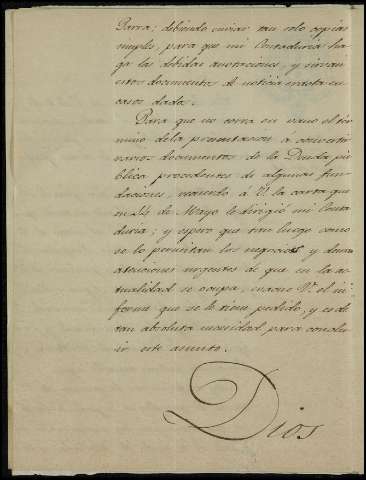 Parra; debiendo enviar tan solo copias
simples, para que mi Contaduria ha-
ga las debidas anotaciones, y sirvan
estos documentos de noticia exacta en
caso dado.
Para que no corra en vano el tér-
mino de la presentacion á convertir
varios documentos de la Deuda pú-
blica procedentes de algunas fun-
daciones, recuerdo á V. la carta que
en 24 de Mayo le dirigió mi Conta-
duria; y espero que tan luego como
se lo permitan los negocios y demas
atenciones urgentes de que en la ac-
tualidad se ocupa, evacue V. el in-
forme que se le tiene pedido, y es de
tan absoluta necesidad para conclu-
ir este asunto.
Dios